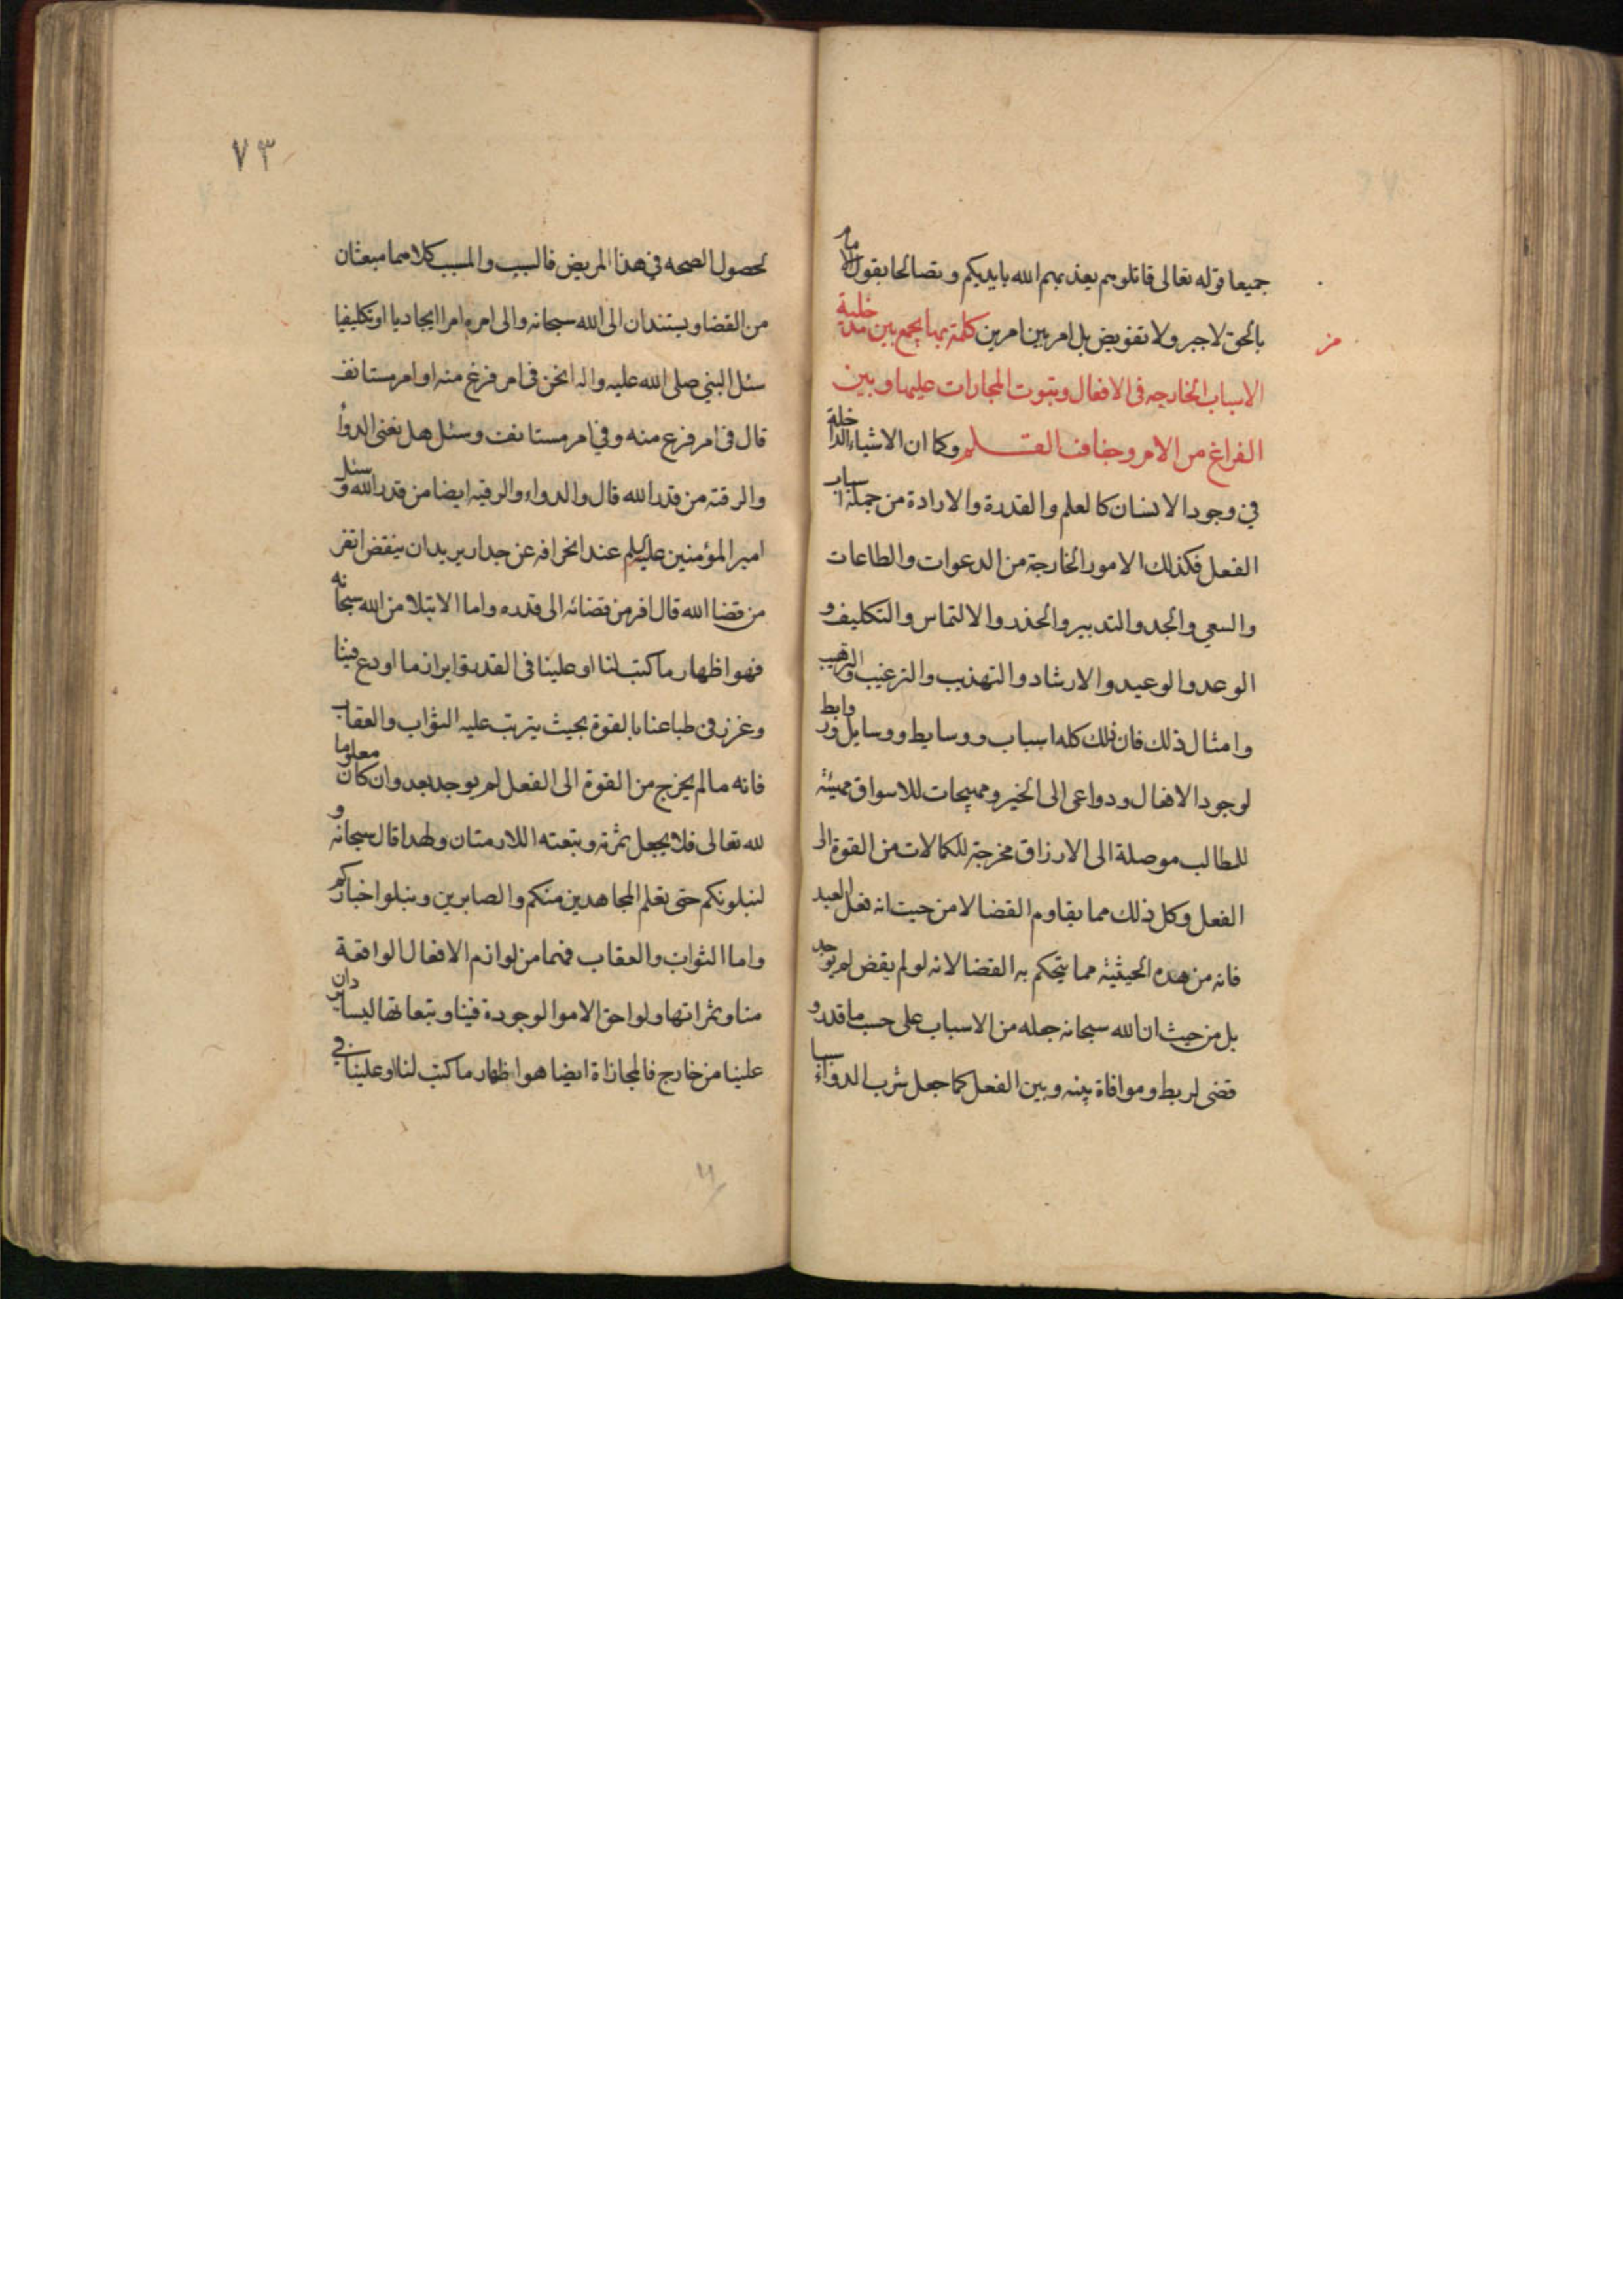 جميعا قوله تعالى قاتلوهم يعذبهم الله بايديكم وتصالحا بقول الامام
بالحق لا جبر ولا تفويض بل امر بين امرين كلمة بها يجمع بين مدخلية
الاسباب الخارجه فى الافعال وبثبوت المجازات عليها وبين
الفراغ من الامر وجفاف القلم وكما ان الاشياء الداخلة
في وجود الانسان كالعلم والقدرة والارادة من جملة اسباب
الفعل فكذلك الامور الخارجة من الدعوات والطاعات
والسعي والجد والتدبير والحذر والالتماس والتكليف و
الوعد والوعيد والارشاد والتهذيب والترغيب والترهيب
وامثال ذلك فان ذلك كله اسباب ووسايط ووسايل وروابط
لوجود الافعال ودواعى الى الخير ومهيجات للاسواق مهيئة
للمطالب موصلة الى الارزاق مخرجة للكمالات من القوة الى
الفعل وكل ذلك مما يقاوم القضا لا من حيث انه فعل العبد
فانه من هذه الحيثية مما يتحكم به القضا لانه لو لم يقض لم يوجد
بل من حيث ان الله سبحانه جعله من الاسباب على حسب ما قدر و
قضى لربط وموافاة بينه وبين الفعل كما جعل شرب الدواء سببا
٧٣
لحصول الصحه في هذا المريض فالسبب والمسبب كلاهما مبعثان
من القضا ويستندان الى الله سبحانه والى امره امرا ايجاديا او تكليفيا
سئل النبي صلى الله عليه واله انحن فى امر فرغ منه او امر مستانف
قال فى امر فرغ منه وفي امر مستانف وسئل هل يغنى الدواء
والرقية من قدر الله قال والدواء والرقيه ايضا من قدر الله وسئل
امير المؤمنين عليه السلم عند انحرافه عن جدار يريد ان ينقض اتفر
من قضا الله قال افر من قضائه الى قدره واما الابتلا من الله سبحانه
فهو اظهار ما كتب لنا او علينا فى القدر وابراز ما اودع فينا
وغرز فى طباعنا بالقوة بحيث يترتب عليه الثواب والعقاب
فانه ما لم يخرج من القوة الى الفعل لم يوجد بعد وان كان معلوما
لله تعالى فلا يجعل ثمرته وتبعته اللازمتان ولهذا قال سبحانه و
لنبلونكم حتى نعلم المجاهدين منكم والصابرين ونبلوا اخباركم
واما الثواب والعقاب فهما من لوازم الافعال الواقعة
منا وثمراتها ولواحق الامور الموجودة فينا وتبعاتها ليسا يردان
علينا من خارج فالمجازاة ايضا هو اظهار ما كتب لنا او علينا في